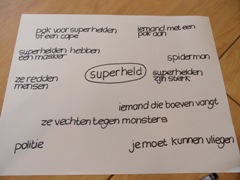 pak voor superhelden
of een cape
iemand met een
pak aan
superhelden hebben
een masker
spiderman
superheld
superhelden
zijn sterk
ze redden
mensen
iemand die boeven vangt
ze vechten tegen monsters
politie
je moet kunnen vliegen